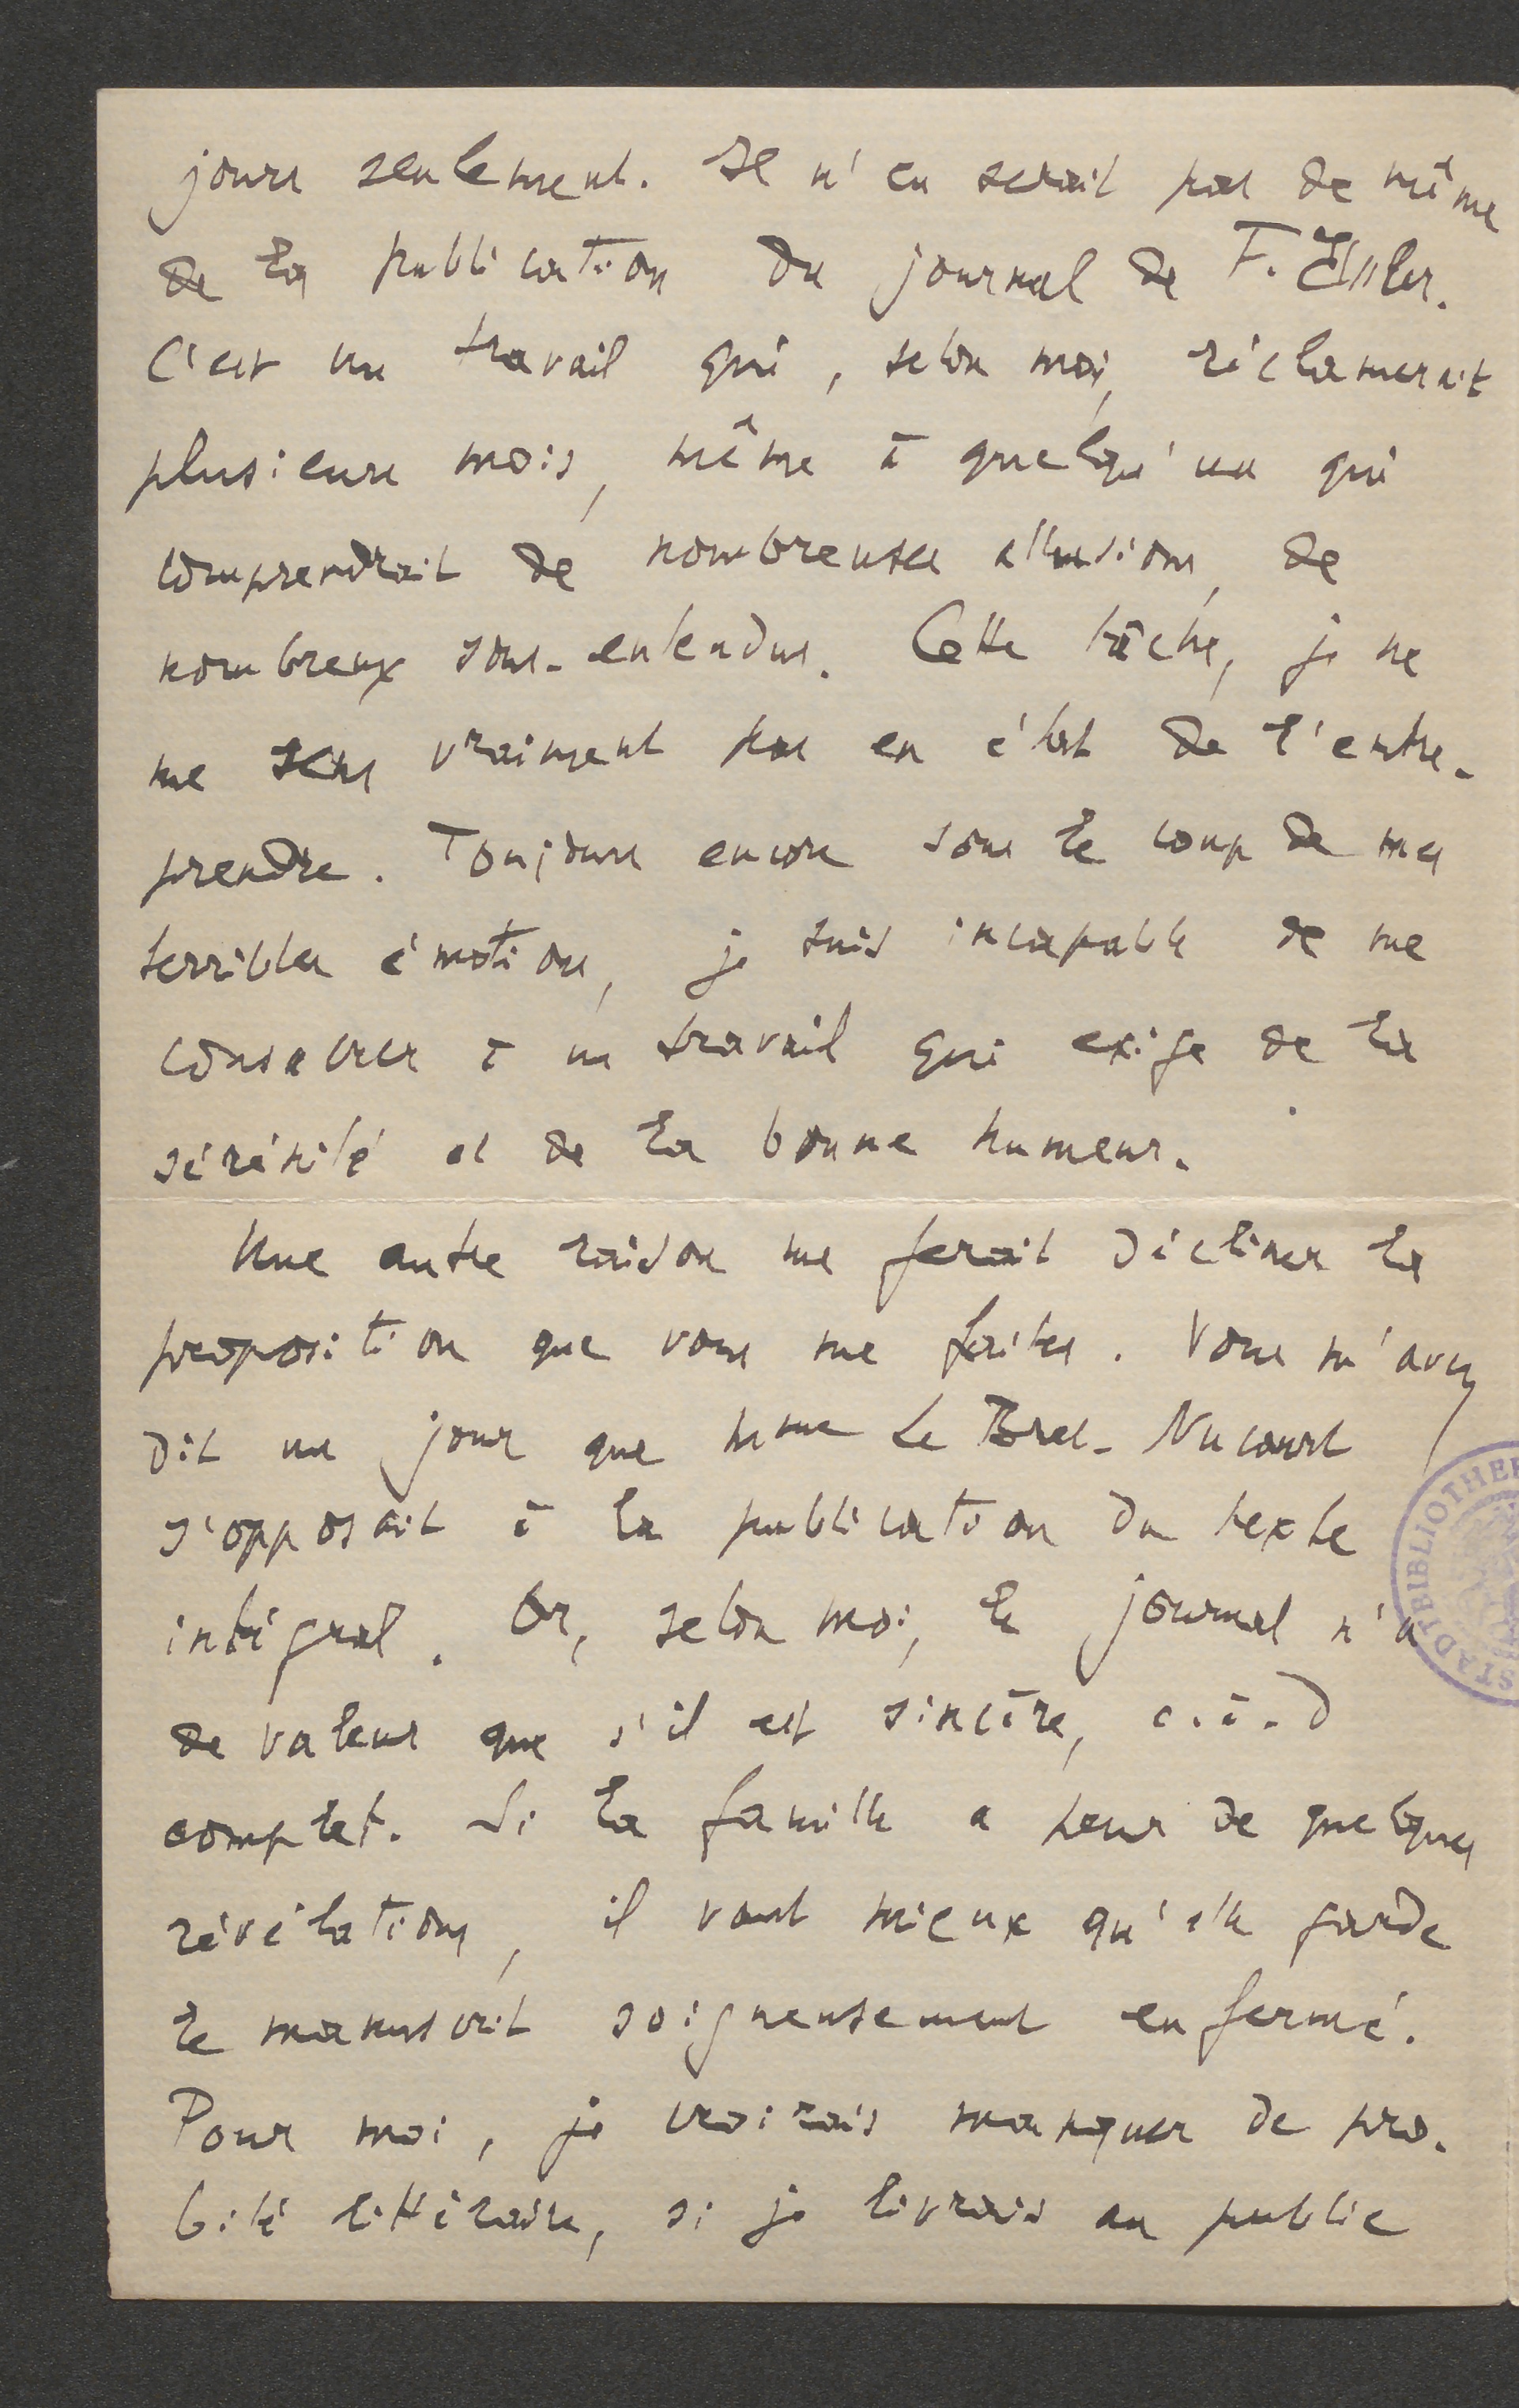 jours seulement. Il n'en serait pas de même
de la publication du journal de F. Elssler.
C'est un travail qui, selon moi, réclamerait
plusieurs mois, même à quelqu'un qui
comprendrait de nombreuses allusions, de
nombreux sous-entendus. Cette tâche, je ne
me sens vraiment pas en état de l'entre-
prendre. Toujours encore sous le coup de mes
terribles émotions, je suis incapable de me
consacrer à un travail qui exige de la
sérénité et de la bonne humeur.
Une autre raison me ferait décliner la
proposition que vous me faites. Vous m'avez
dit un jour que Mme Le Bret-Nucourt
s'opposait à la publication du texte
intégral. Or, selon moi, le journal n'a
de valeur que s'il est sincère, c.à.d
complet. Si la famille a peur de quelques
révélations, il vaut mieux qu'elle garde
le manuscrit soigneusement enfermé.
Pour moi, je croirais manquer de pro-
bité littéraire, si je livrais au public
STADTBIBLIOTHEK